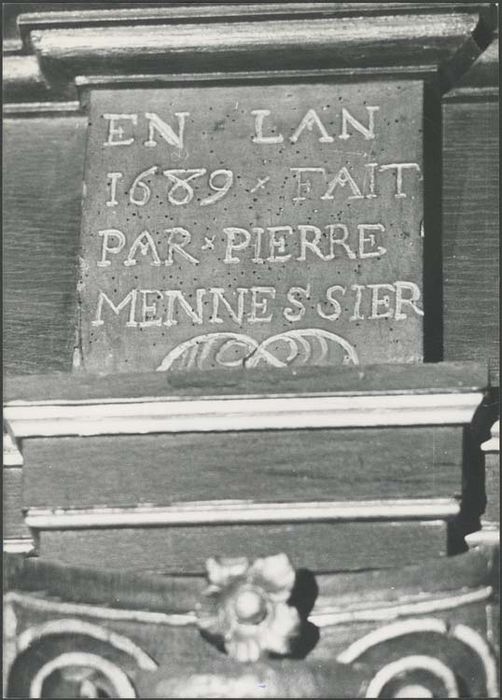 EN LAN
1689 × FAIT
PAR × PIERRE
MENNESSIER